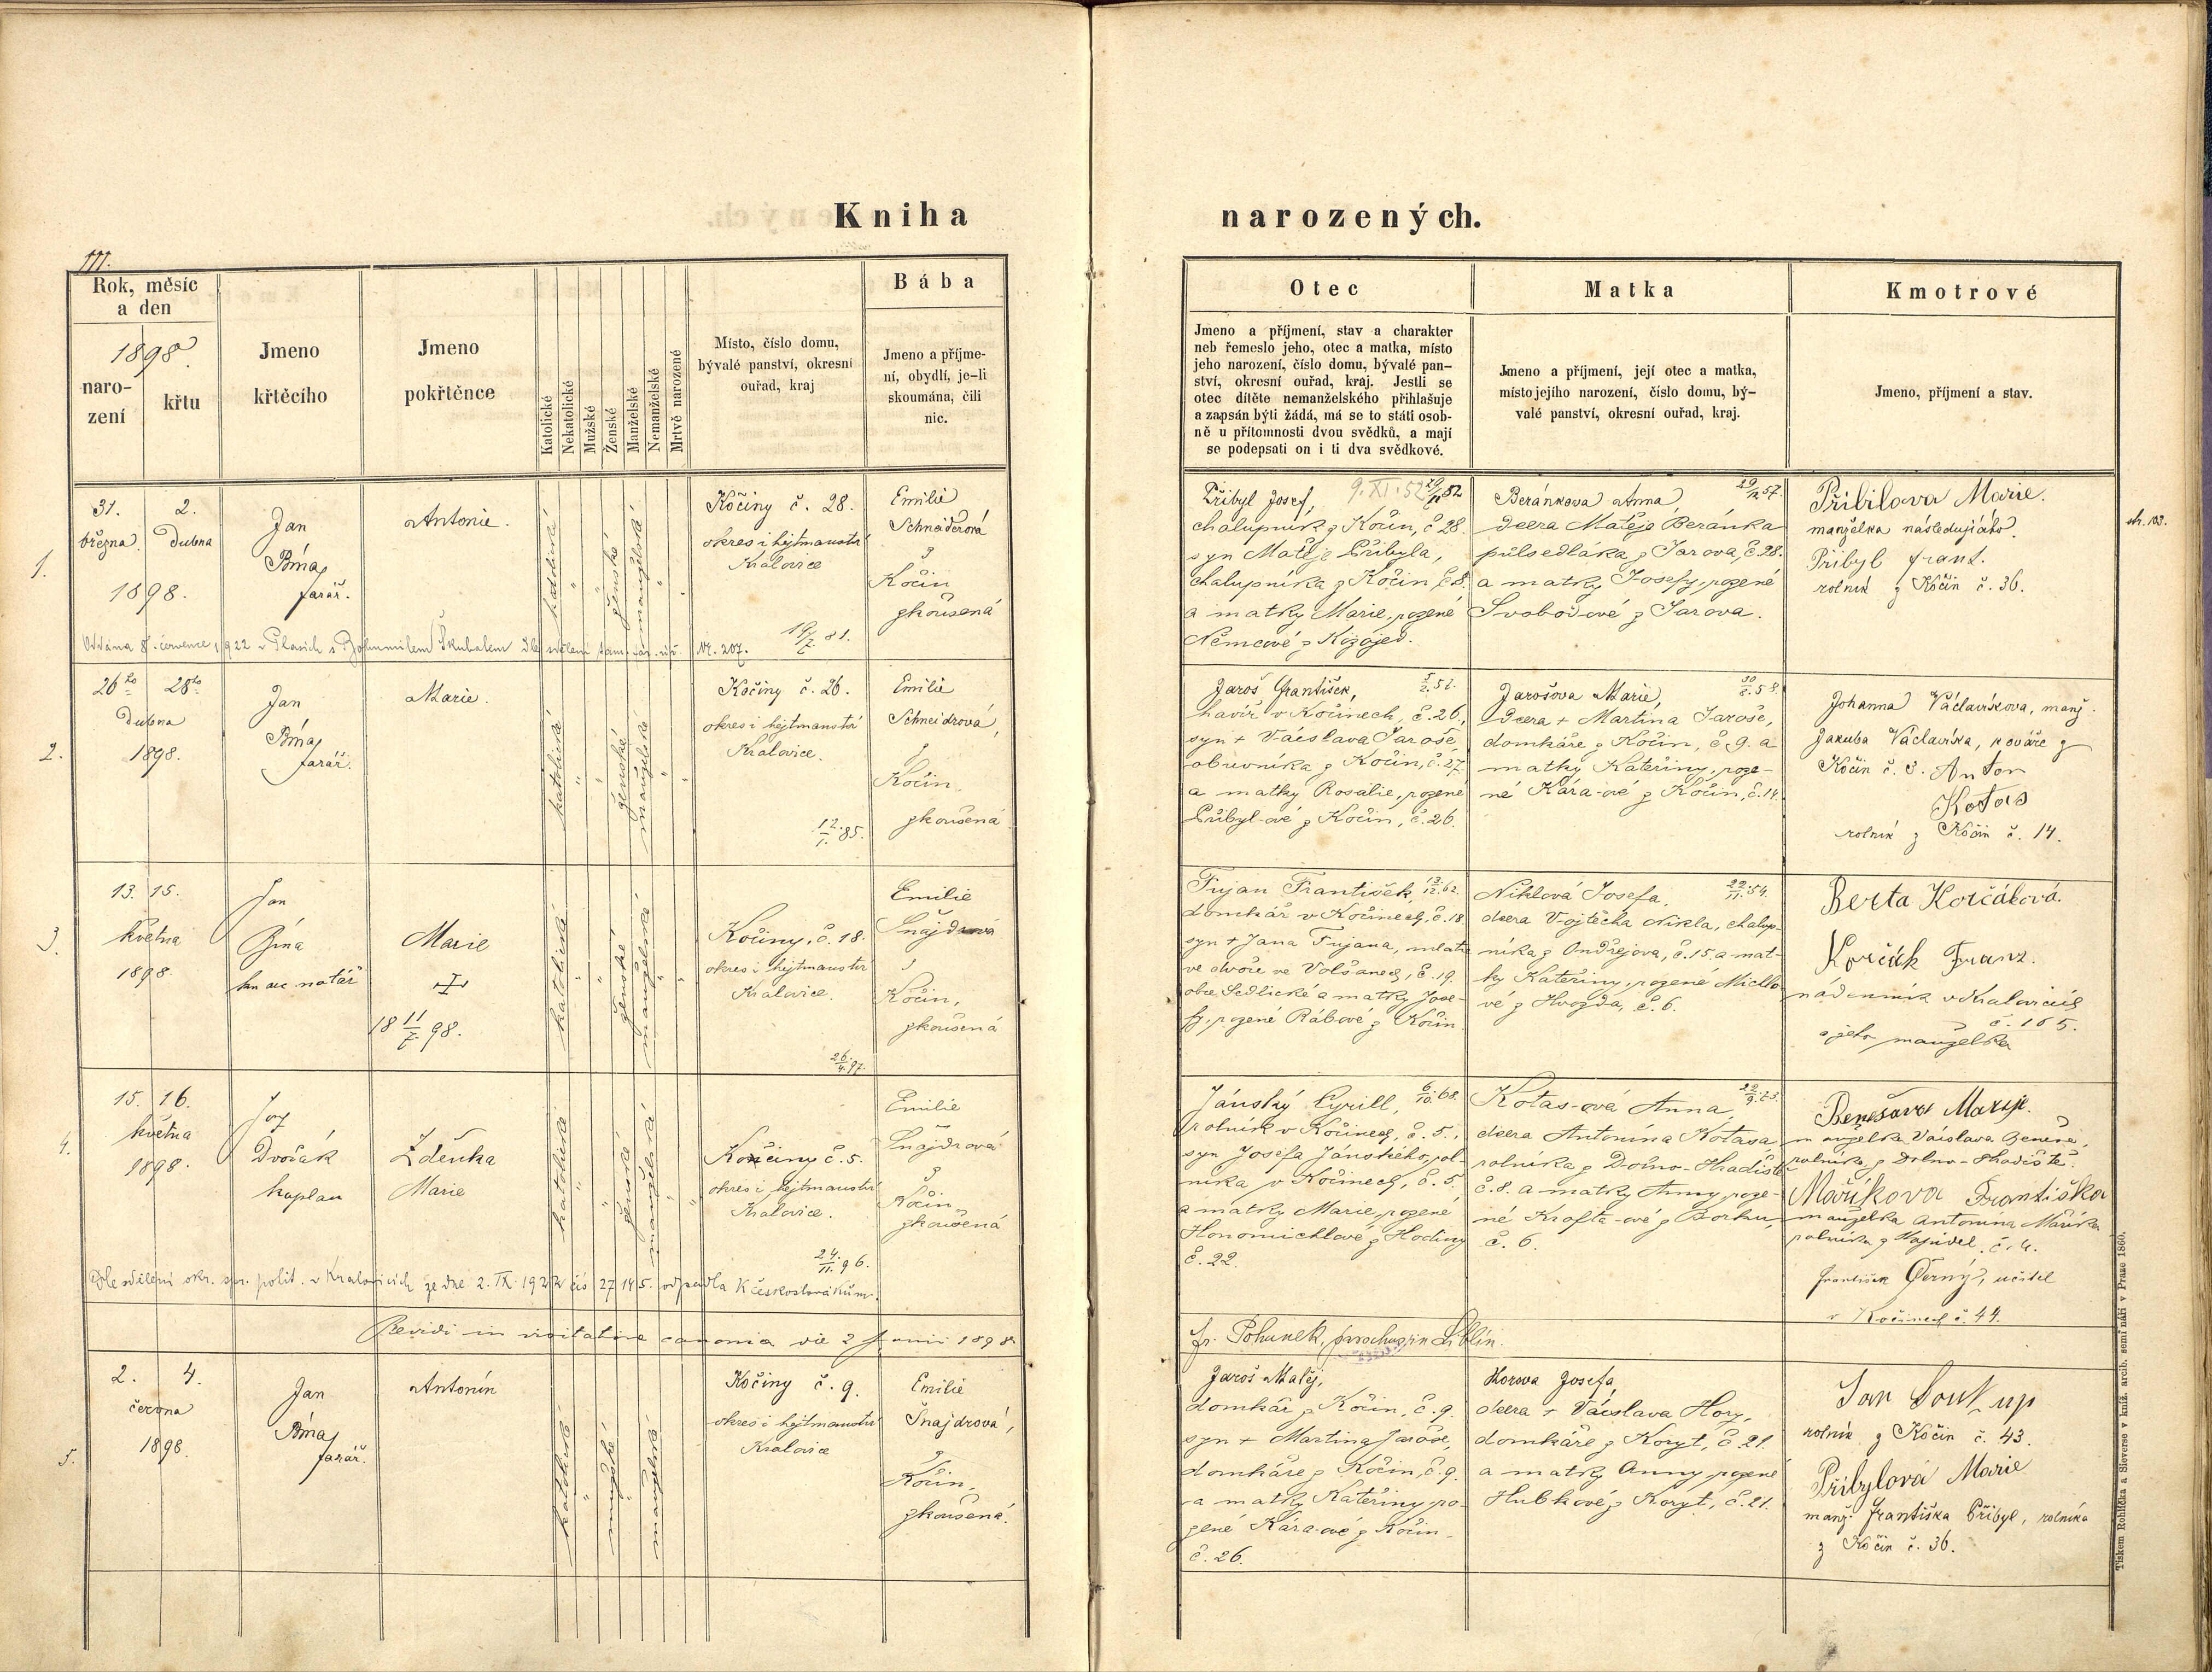 Kniha narozených.
III.
Rok, měsíc
a den
1898.
naro-
zení
křtu
Jmeno
křtěcího
Jmeno
pokřtěnce
Katolické
Nekatolické
Mužské
Ženské
Manželské
Nemanželské
Mrtvě narozené
Místo, číslo domu,
bývalé panství, okresní
ouřad, kraj
Bába
Jmeno a příjme-
ní, obydlí, je-li
skoumána, čili
nic.
Otec
Jmeno a příjmení, stav a charakter
neb řemeslo jeho, otec a matka, místo
jeho narození, číslo domu, bývalé pan-
ství, okresní ouřad, kraj. Jestli se
otec dítěte nemanželského přihlašuje
a zapsán býti žádá, má se to státi osob-
ně u přítomnosti dvou svědků, a mají
se podepsati on i ti dva svědkové.
Matka
Jmeno a příjmení, její otec a matka,
místo jejího narození, číslo domu, bý-
valé panství, okresní ouřad, kraj.
Kmotrové
Jmeno, příjmení a stav.
1.
31. 2.
března. Dubna
1898.
Jan
farář.
Antonie.
katolické
ženské
manželské
Kočiny č. 28.
okres i hejtmanství
Kralovice
Emilie
Schneiderová
z
Kočin
zkoušená
Přibyl Josef, 9. XI. 52
chalupník z Kočin, č 28
syn Matěje Přibyla,
chalupníka z Kočin č 8.
a matky Marie, rozené
Němcové z Kozojed.
Beránkova Anna
dcera Matěje Beránka
půlsedláka z Jarova, č. 28.
a matky Josefy, rozené
Svobodové z Jarova.
Přibilova Marie.
manželka následujícího
Přibyl frant.
rolník z Kočin č. 36.
str. 103.
Oddána 8. července 1922 v Plasích s Bohumilem Škubalem dle sdělení tam. far. úř. Nr. 207.
19/7 81.
2.
26ho 28ho
Dubna
1898.
Jan
farář.
Marie.
katolické
ženské
manželské
Kočiny č. 26.
okres i hejtmanství
Kralovice.
12/1. 85.
Emilie
Schneidrová,
z
Kočin,
zkoušená
Jaroš František, 5/2. 52.
havíř v Kočinech, č. 26.,
syn + Václava Jaroše,
obuvníka z Kočin, č. 27,
a matky Rosalie, rozené
Přibyl-ové z Kočin, č. 26.
Jarošova Marie,
dcera + Martina Jaroše,
domkáře z Kočin, č. 9. a
matky Kateřiny, roze-
né Kára-ové z Kočin, č. 14.
Johanna Václavíkova, manž.
Jakuba Václavíka, kováře z
Kočin č. 3. Anton
Kotas
rolník z Kočin č. 14.
3.
13. 15.
května
1898.
Jan
kn. arc. notář
Marie
18 11/7. 98.
katolické
ženské
manželské
Kočiny, č. 18.
okres i hejtmanství
Kralovice.
26./4. 97.
Emilie
Šnajdrová
z
Kočin,
zkoušená
Fujan František, 13/12. 62.
domkář v Kočinech, č. 18
syn + Jana Fujana, mlatce
ve dvoře ve Volšanech, č. 19.
obce Sedlické a matky Jose-
fy, rozené Rábové z Kočin.
Niklová Josefa, 22/11. 54.
dcera Vojtěcha Nikla, chalup-
níka z Ondřejova, č. 15. a mat-
ky Kateřiny, rozené Michlo-
vé z Hvozda, č. 6.
Berta Korčáková.
Korčák Franz.
nádenník v Kralovicích
č. 165.
a jeho manželka
4.
15. 16.
května
1898.
Jos.
Dvořák
kaplan
Zdeňka
Marie
katolické
ženské
manželské
Kočiny č. 5.
okres i hejtmanství
Kralovice.
24./11. 96.
Emilie
Šnajdrová
z
Kočin
zkoušená
Jánský Cyrill, 6/10. 68.
rolník v Kočinech, č. 5.,
syn Josefa Jánského, rol-
níka v Kočinech, č. 5.
a matky Marie, rozené
Honomichlové z Hodiny
č. 22.
Kotas-ová Anna,
dcera Antonína Kotasa,
rolníka z Dolno-Hradiště
č. 8. a matky Anny, roze-
né Krofta-ové z Borku,
č. 6.
Benešova Marie.
manželka Václava Beneše,
rolníka z Dolno-Hradiště.
Maříkova Františka
manželka Antonína Maříka
rolníka z č. 4.
František Černý, učitel
v Kočinech č. 44.
Dle sdělení okr. spr. polit. v Kralovicích ze dne 2. IX. 1922 čís 27145. odpadla k českoslovákům.
Revidi in visitatione canonica die 2 Junii 1898. fr. Pohunek, parochus in Liblín.
5.
2. 4.
června
1898.
Jan
farář.
Antonín
katolické
mužské
manželské
Kočiny č. 9.
okres i hejtmanství
Kralovice
Emilie
Šnajdrová,
z
Kočin,
zkoušená.
Jaroš Matěj,
domkář z Kočin, č. 9.
syn + Martina Jaroše,
domkáře z Kočin, č. 9.
a matky Kateřiny ro-
zené Kára-ové z Kočin,
č. 26.
Horova Josefa
dcera + Václava Hory,
domkáře z Koryt, č. 21.
a matky Anny rozené
Hubkové z Koryt, č. 21.
Jan Soukup
rolník z Kočin č. 43.
Přibylová Marie
manž. Františka Přibyl, rolníka
z Kočin č. 36.
Tiskem Rohlíčka a Sieverse v kníž. arcib. semináři v Praze 1860.